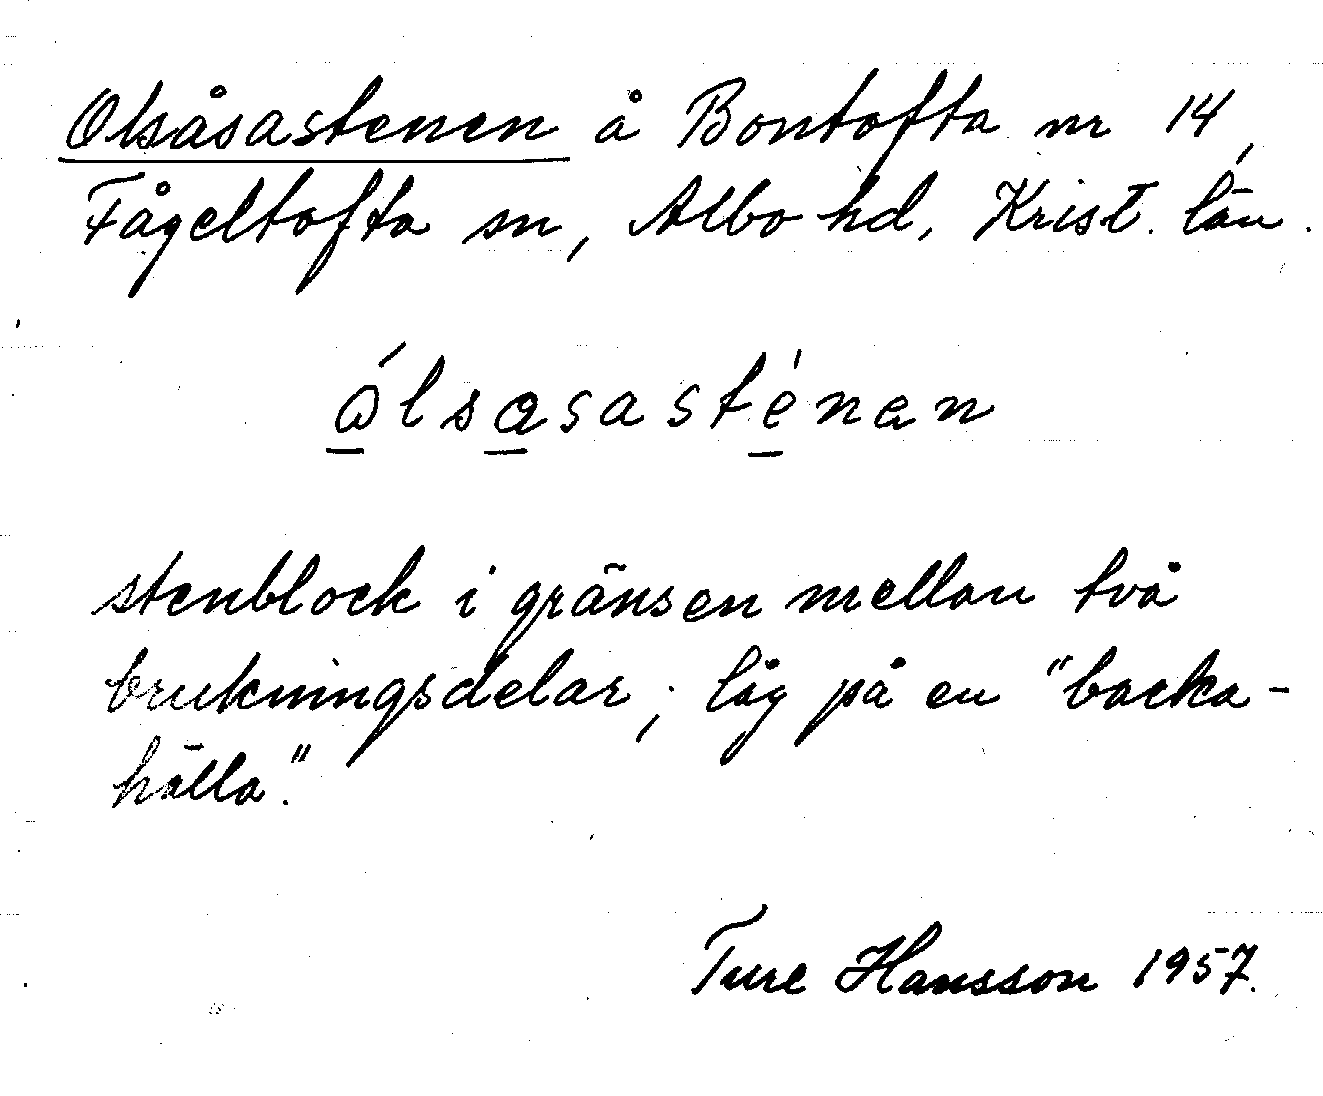 Olsåsastenen å Bontofta nr 14,
Fågeltofta sn, Albo hd, Krist. län.
ó̲lsa̲sasté̲nen
stenblock i gränsen mellan två
brukningsdelar; låg på en "backa-
hälla".
Ture Hansson 1957.